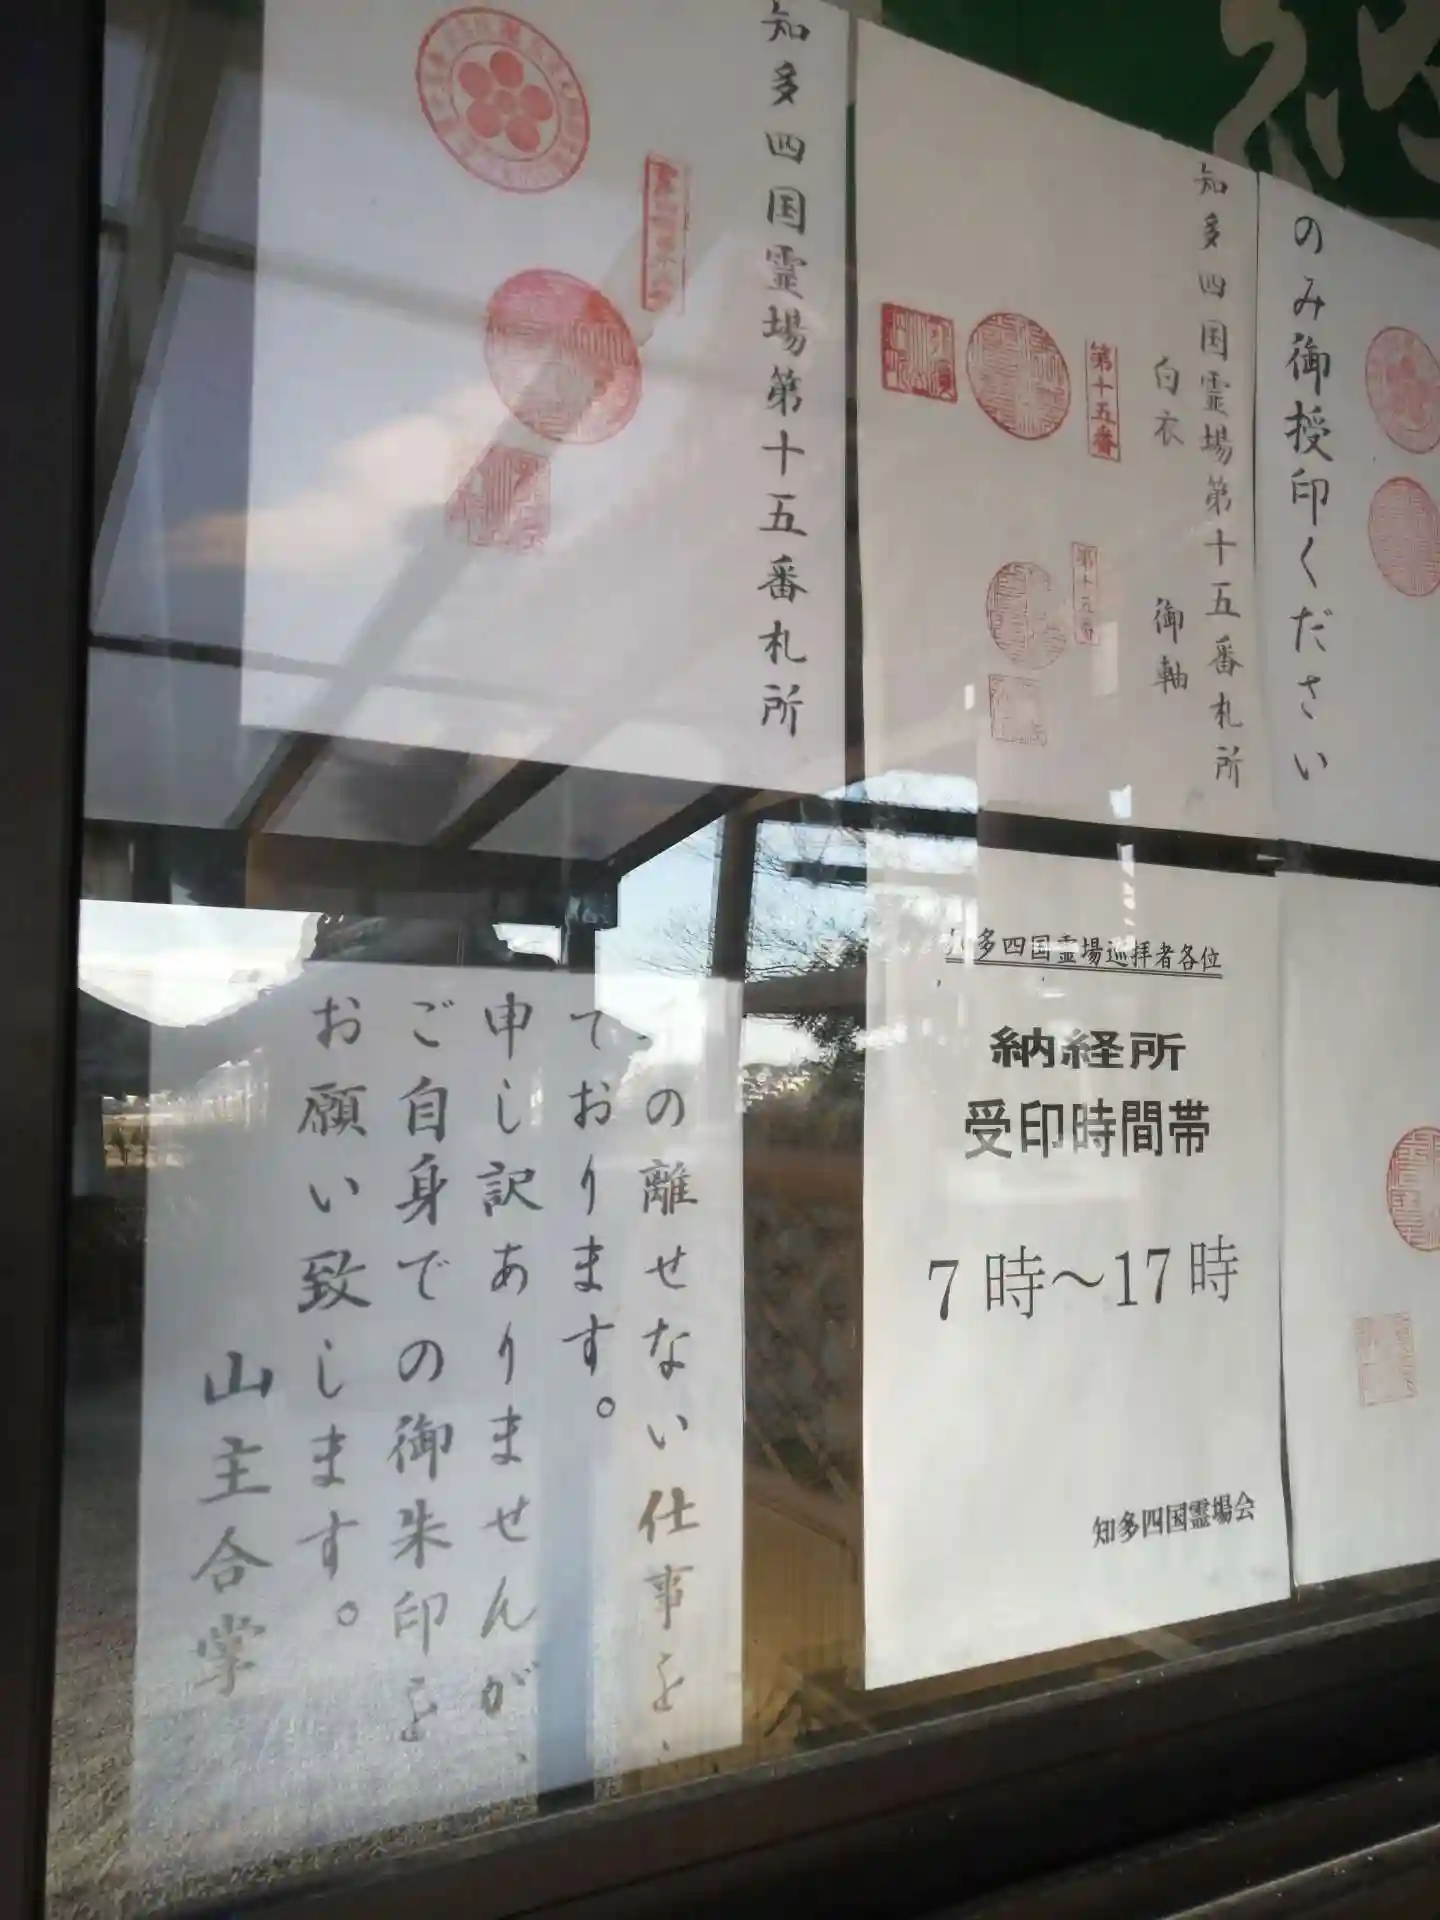 のみ御授印ください
知多四国霊場第十五番札所
白衣
御軸
第十五番
第十五番
知多四国霊場第十五番札所
知多四国霊場巡拝者各位
納経所
受印時間帯
7時～17時
知多四国霊場会
の離せない仕事を
ております。
申し訳ありませんが、
ご自身での御朱印を
お願い致します。
山主合掌